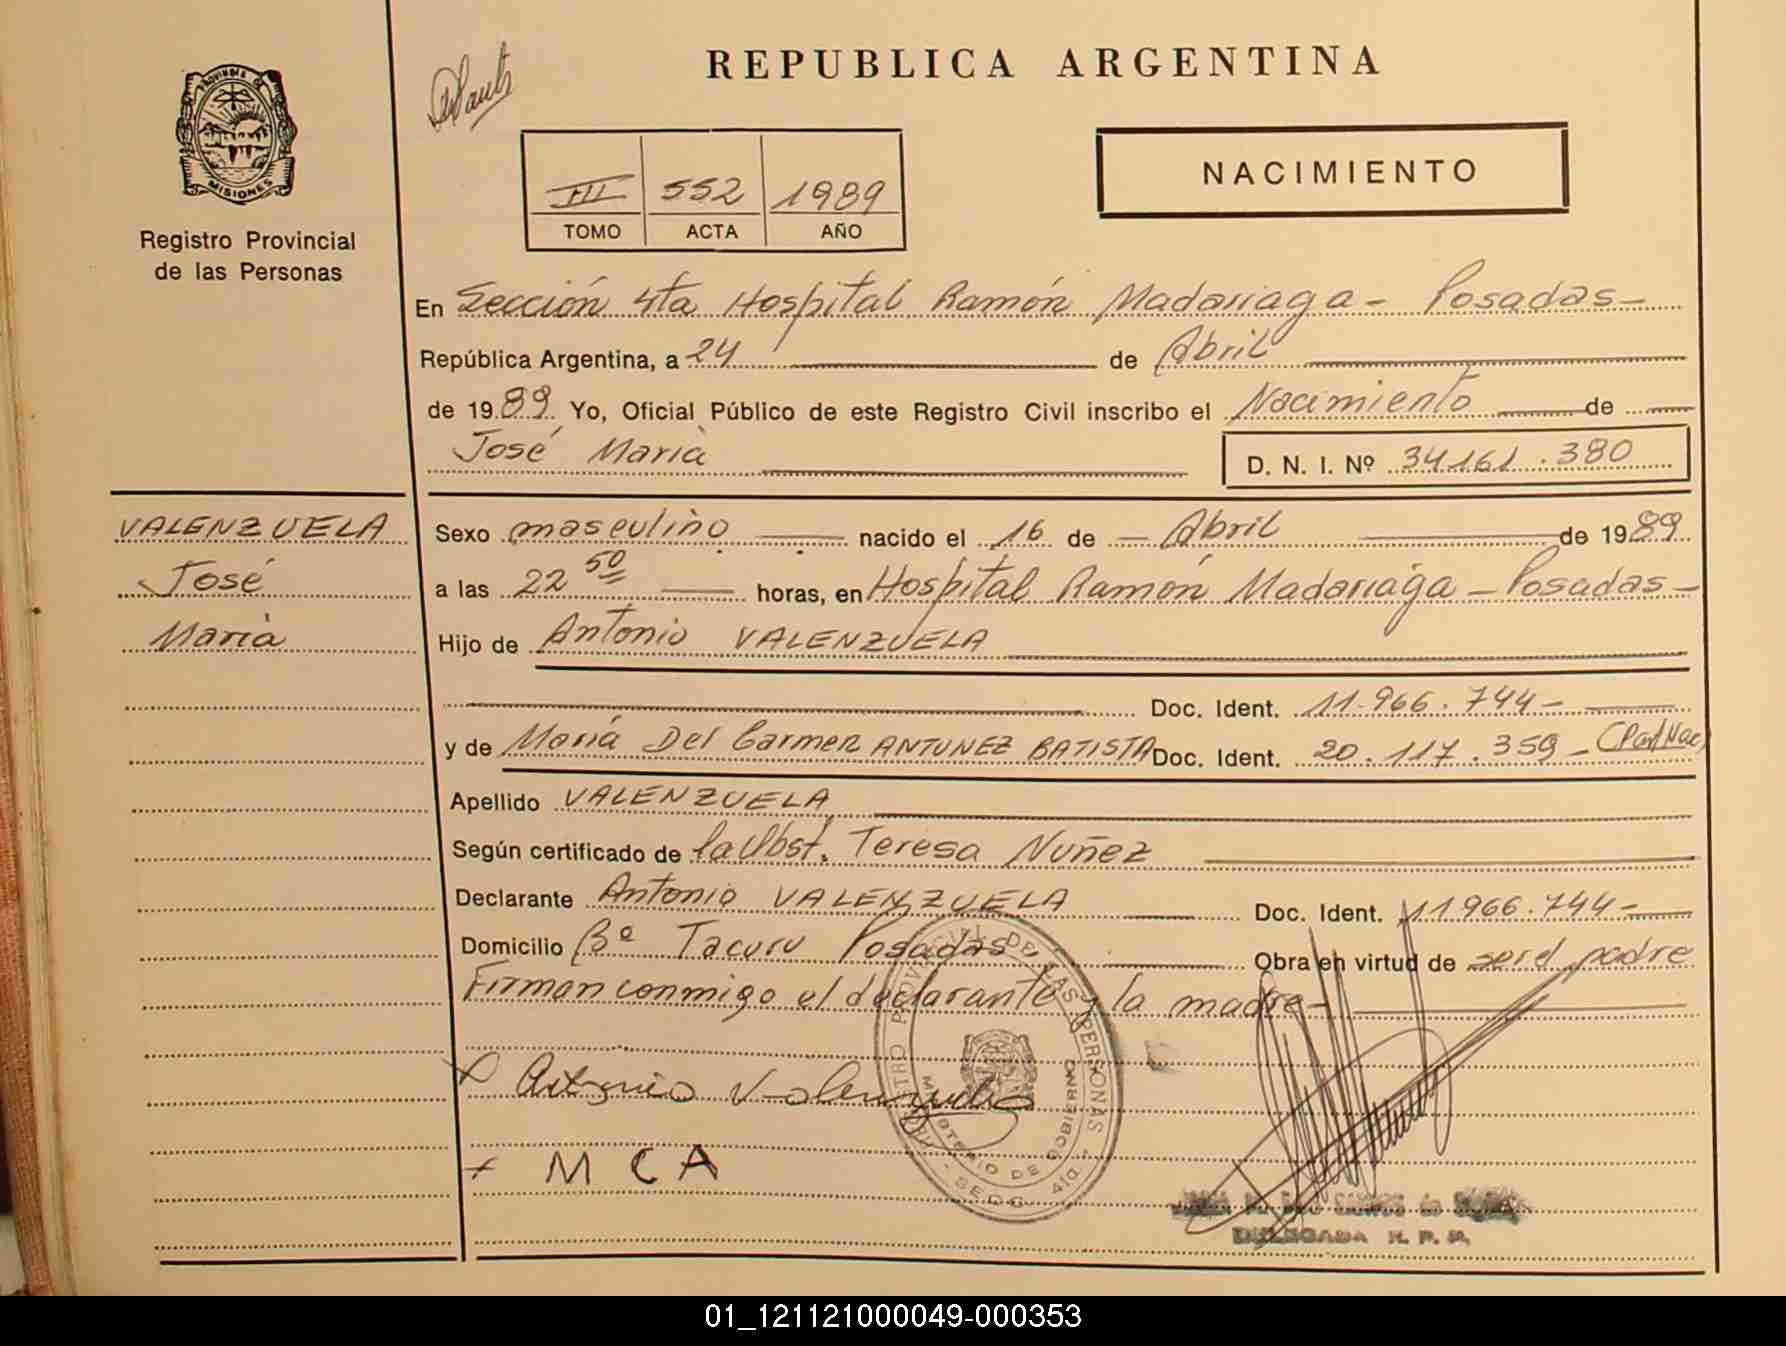 REPUBLICA ARGENTINA
PROVINCIA DE
MISIONES
Registro Provincial
de las Personas
III 552 1989
TOMO ACTA AÑO
NACIMIENTO
En Sección 4ta Hospital Ramón Madariaga - Posadas -
República Argentina, a 24 de Abril
de 1989. Yo, Oficial Público de este Registro Civil inscribo el Nacimiento de
José Marìa
D. N. I. Nº 34161.380
VALENZUELA
José
Marìa
Sexo masculino nacido el 16 de - Abril de 1989
a las 22 50 horas, en Hospital Ramón Madariaga - Posadas -
Hijo de Antonio VALENZUELA
Doc. Ident. 11.966.744 -
y de María Del Carmen ANTUNEZ BATISTA Doc. Ident. 20.117.359 - (Part Nac)
Apellido VALENZUELA
Según certificado de la Obst. Teresa Nuñez
Declarante Antonio VALENZUELA Doc. Ident. 11966.744 -
Domicilio Bº Tacuru Posadas Obra en virtud de ser el padre
Firman conmigo el declarante y la madre -
Antonio Valenzuela
M C A
REGISTRO PROVINCIAL DE LAS PERSONAS
MINISTERIO DE GOBIERNO
- SECC. 4ta. -
DELEGADA R. P. P.
01_121121000049-000353